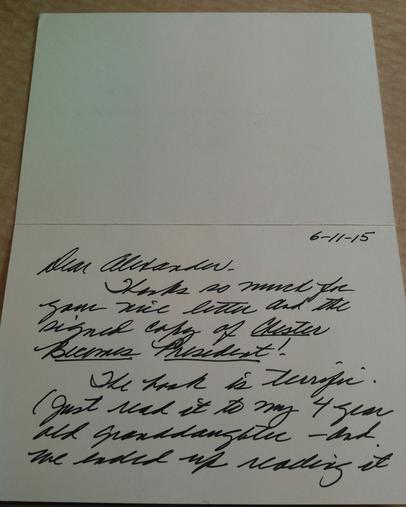 6-11-15
Dear Alexander-
Thanks so much for
your nice letter and the
signed copy of Chester
Becomes President!
The book is terrific.
(Just read it to my 4 year
old granddaughter - and
we ended up reading it